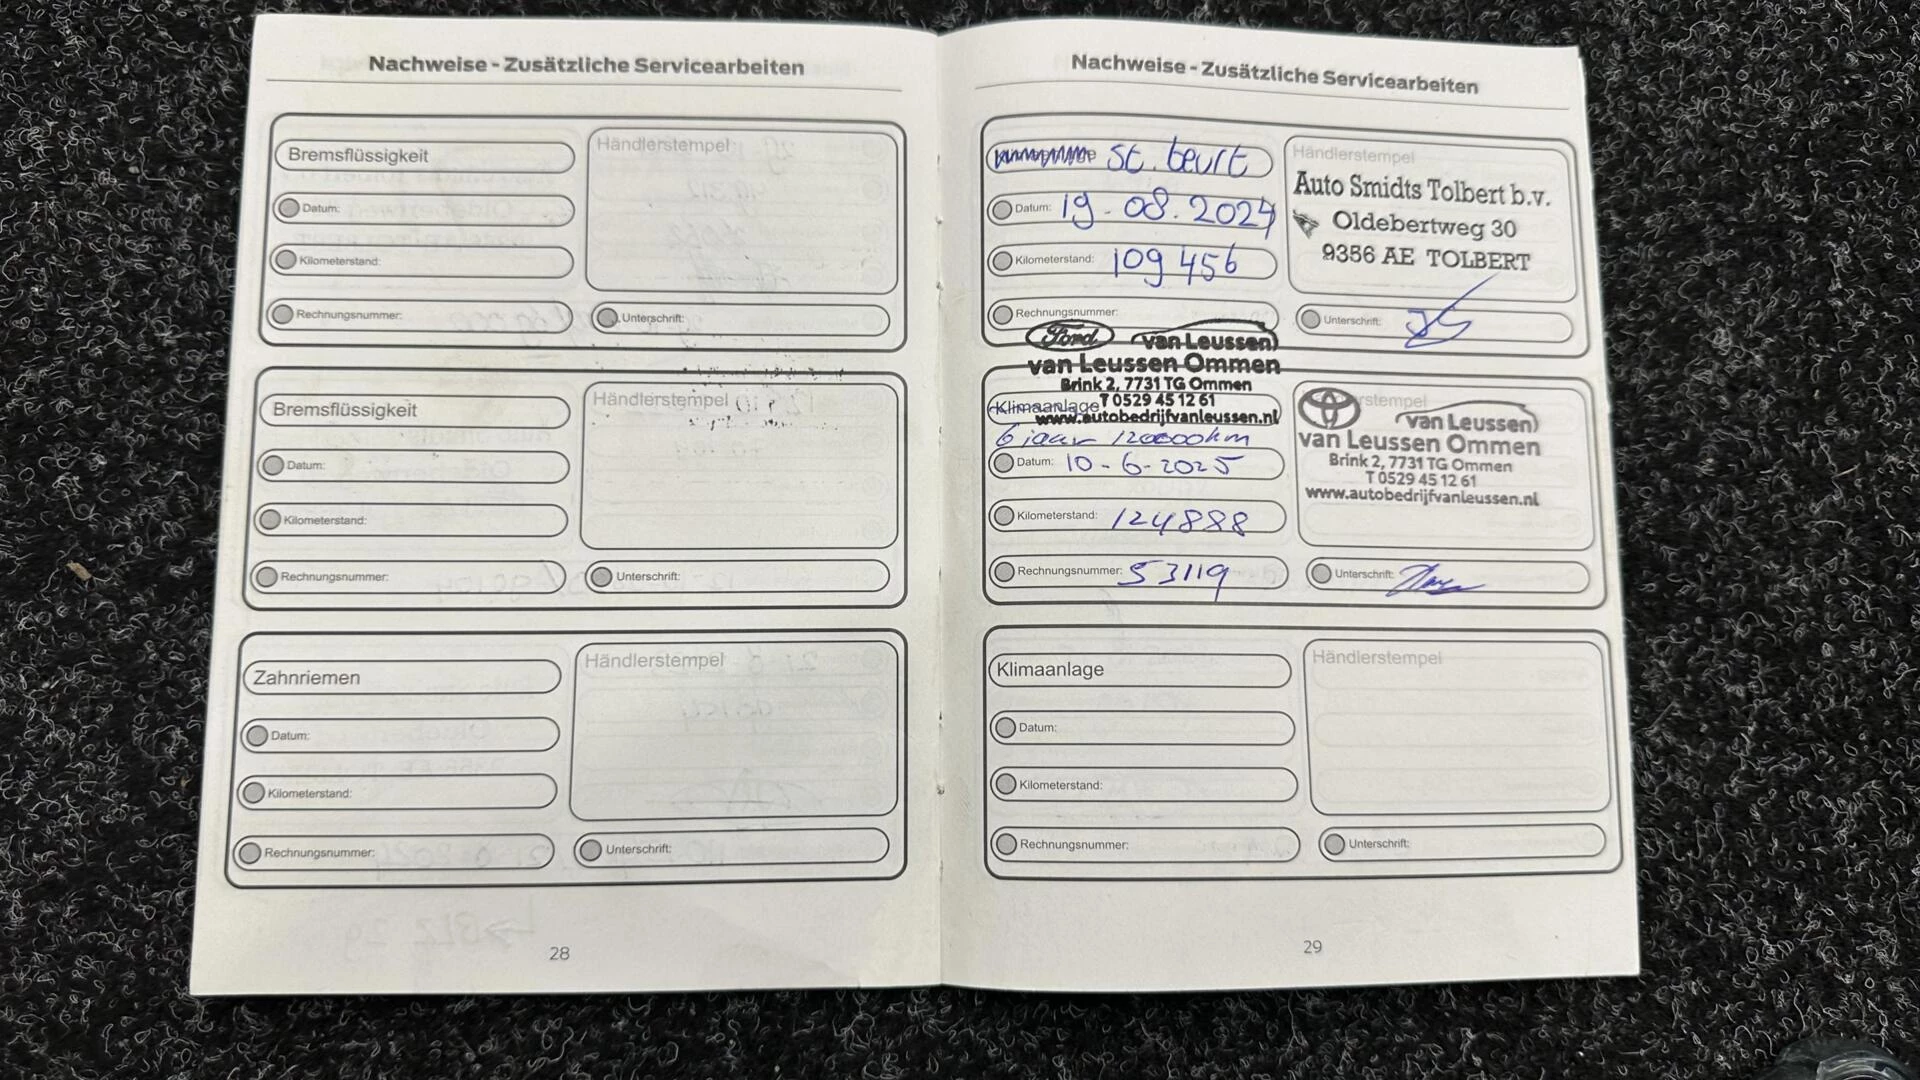 Nachweise - Zusätzliche Servicearbeiten
Bremsflüssigkeit
Händlerstempel
Datum:
Kilometerstand:
Rechnungsnummer:
Unterschrift:
Bremsflüssigkeit
Händlerstempel
Datum:
Kilometerstand:
Rechnungsnummer:
Unterschrift:
Zahnriemen
Händlerstempel
Datum:
Kilometerstand:
Rechnungsnummer:
Unterschrift:
28
Nachweise - Zusätzliche Servicearbeiten
st. beurt
Händlerstempel
Auto Smidts Tolbert b.v.
Oldebertweg 30
9356 AE TOLBERT
Datum: 19-08.2024
Kilometerstand: 109 456
Rechnungsnummer:
Unterschrift:
Ford van Leussen
van Leussen Ommen
Brink 2, 7731 TG Ommen
T 0529 45 12 61
www.autobedrijfvanleussen.nl
Klimaanlage
6 jaar 120000km
Datum: 10-6-2025
Kilometerstand: 124888
Rechnungsnummer: 53119
van Leussen
van Leussen Ommen
Brink 2, 7731 TG Ommen
T 0529 45 12 61
www.autobedrijfvanleussen.nl
Unterschrift:
Klimaanlage
Händlerstempel
Datum:
Kilometerstand:
Rechnungsnummer:
Unterschrift:
29